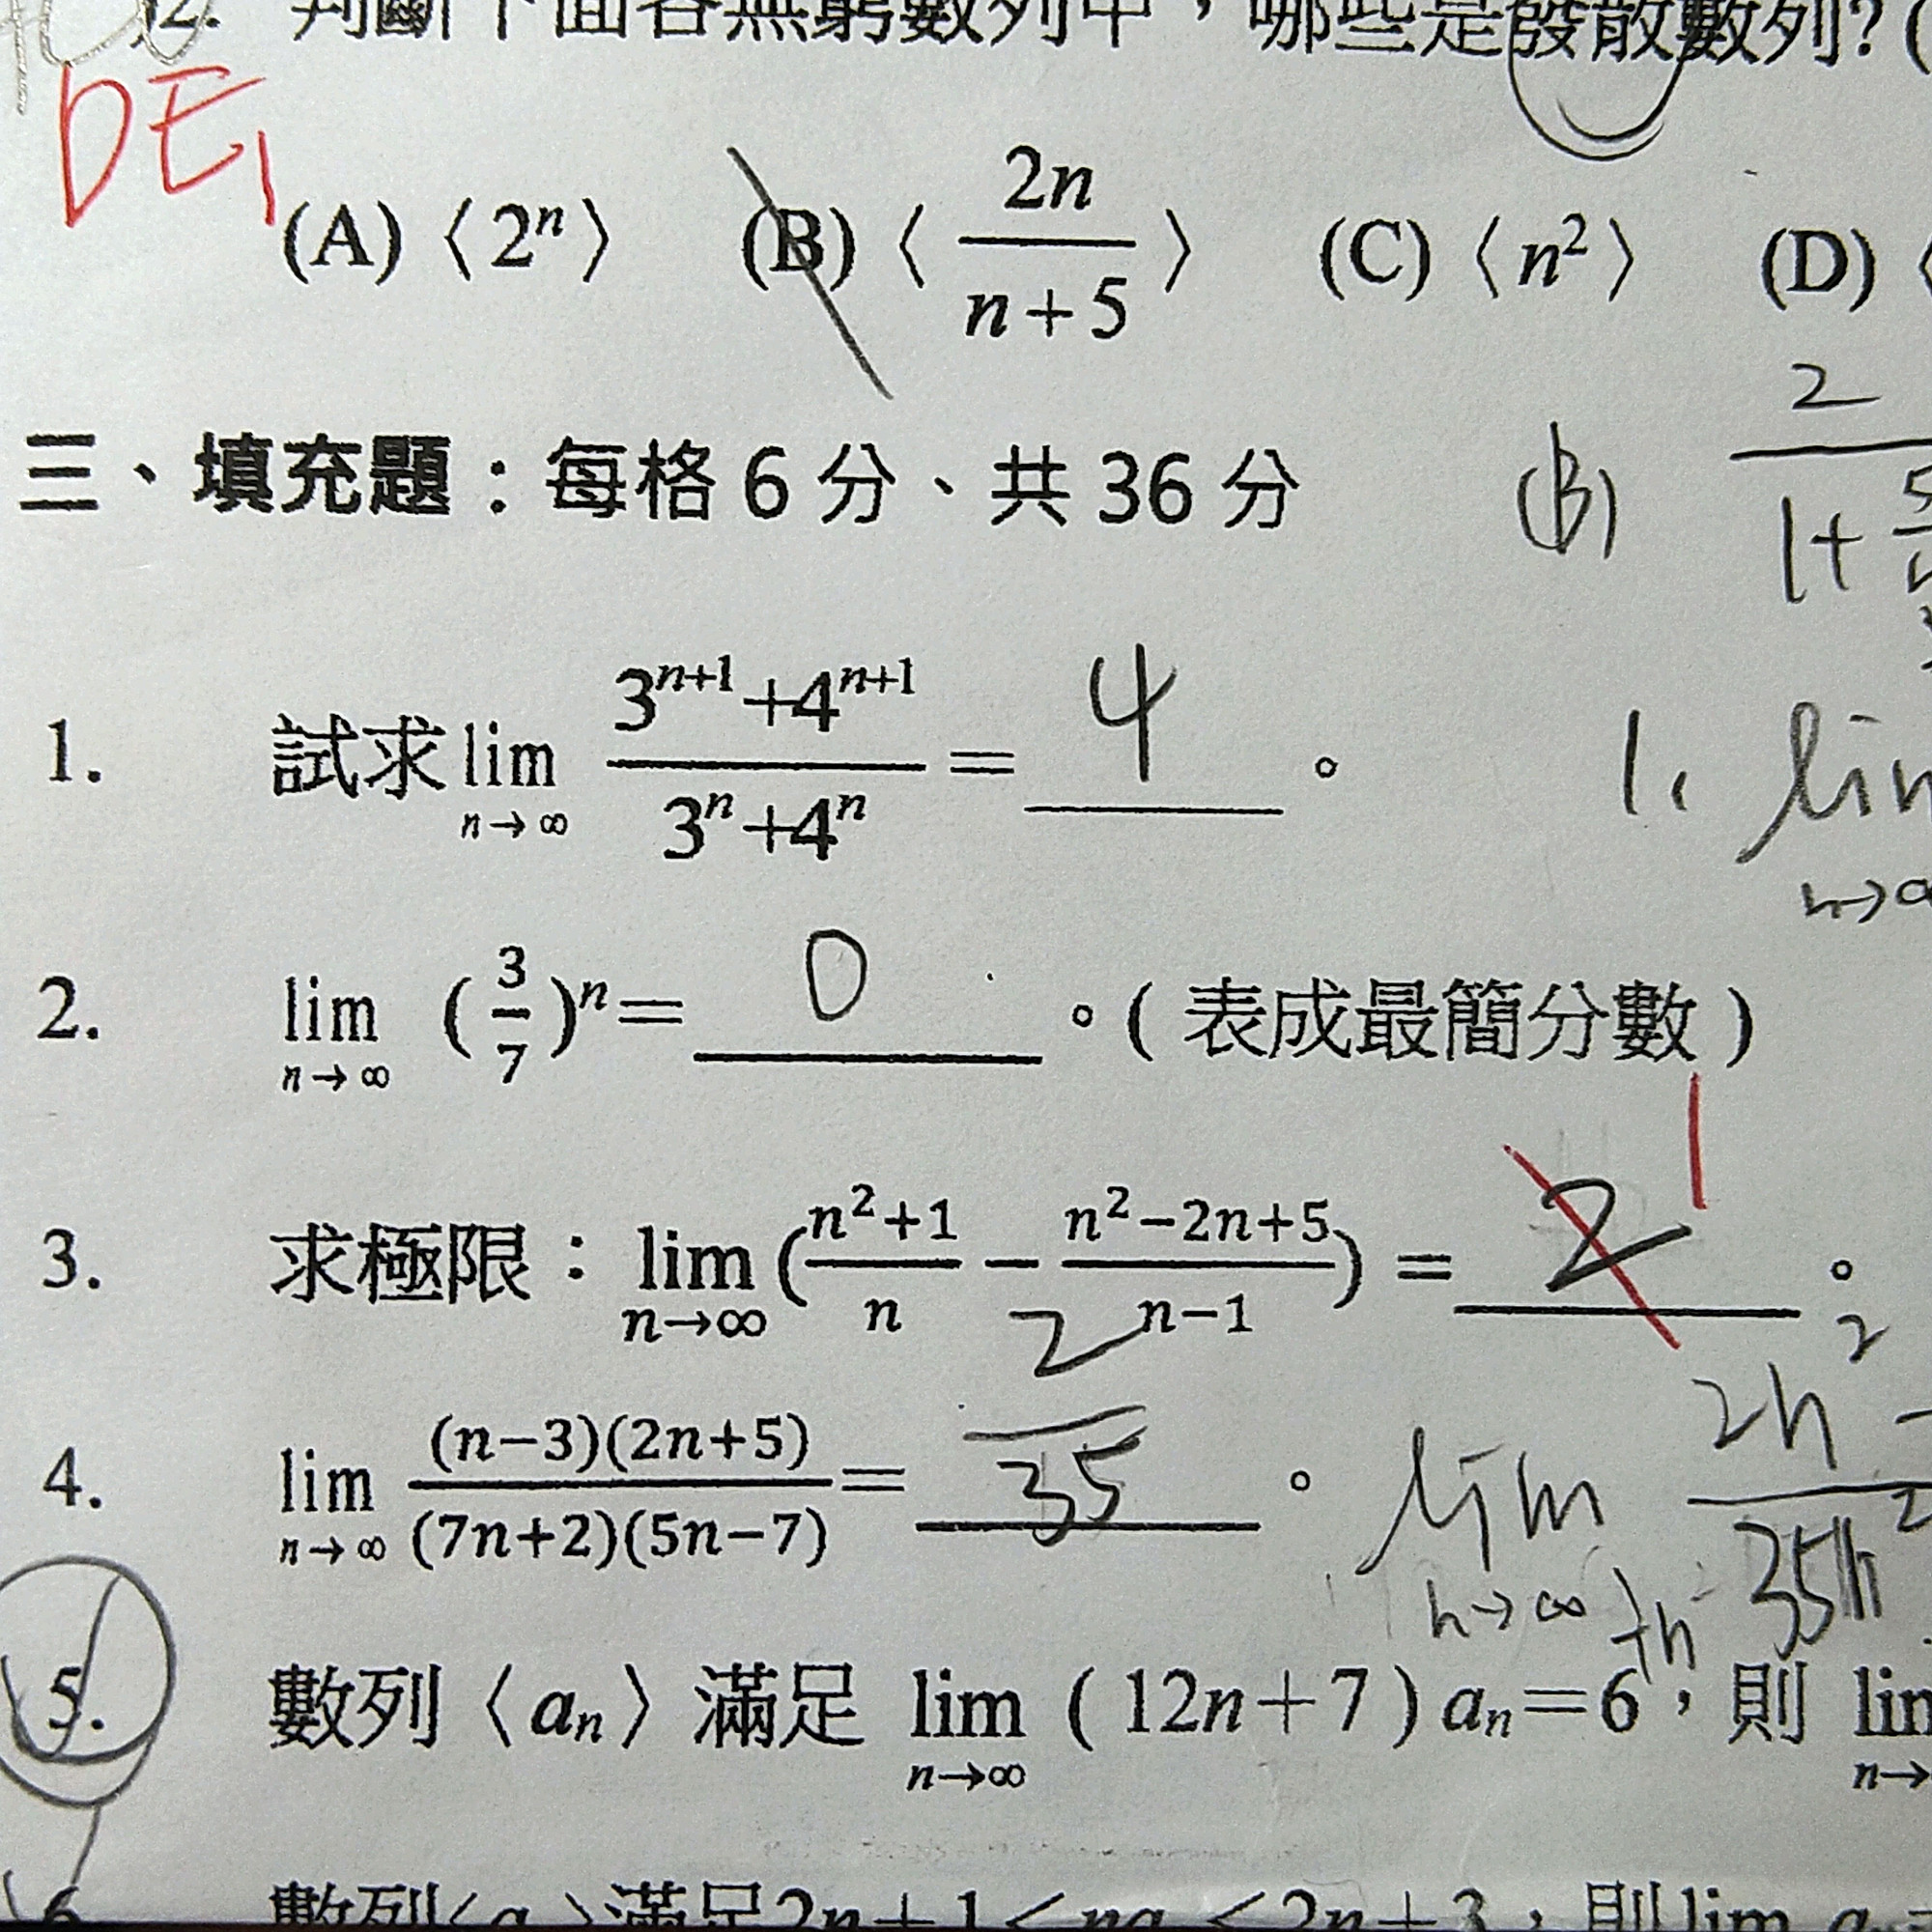 12. 判斷下面各無窮數列中，哪些是發散數列?(
DE
(A)⟨2ⁿ⟩ (B)⟨2n/(n+5)⟩ (C)⟨n²⟩ (D)⟨
三、填充題：每格 6 分、共 36 分
(B) 2/(1+5/
1. 試求 lim n→∞ (3ⁿ⁺¹+4ⁿ⁺¹)/(3ⁿ+4ⁿ) = 4 。
1. lim n→
2. lim n→∞ (3/7)ⁿ= 0 。(表成最簡分數)
3. 求極限：lim n→∞ ((n²+1)/n − (n²−2n+5)/(n−1)) = 2 1 。
4. lim n→∞ (n−3)(2n+5)/(7n+2)(5n−7) = 2/35 。
lim n→∞
5. 數列⟨aₙ⟩滿足 lim n→∞ (12n+7)aₙ=6，則 lim n→
6 數列⟨a ⟩滿足2n+1<na <2n+3，則lim a =